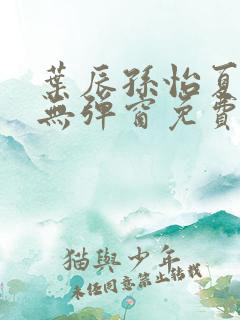 葉辰孫怡夏
無彈窗免費
貓與少年
未经同意禁止转载